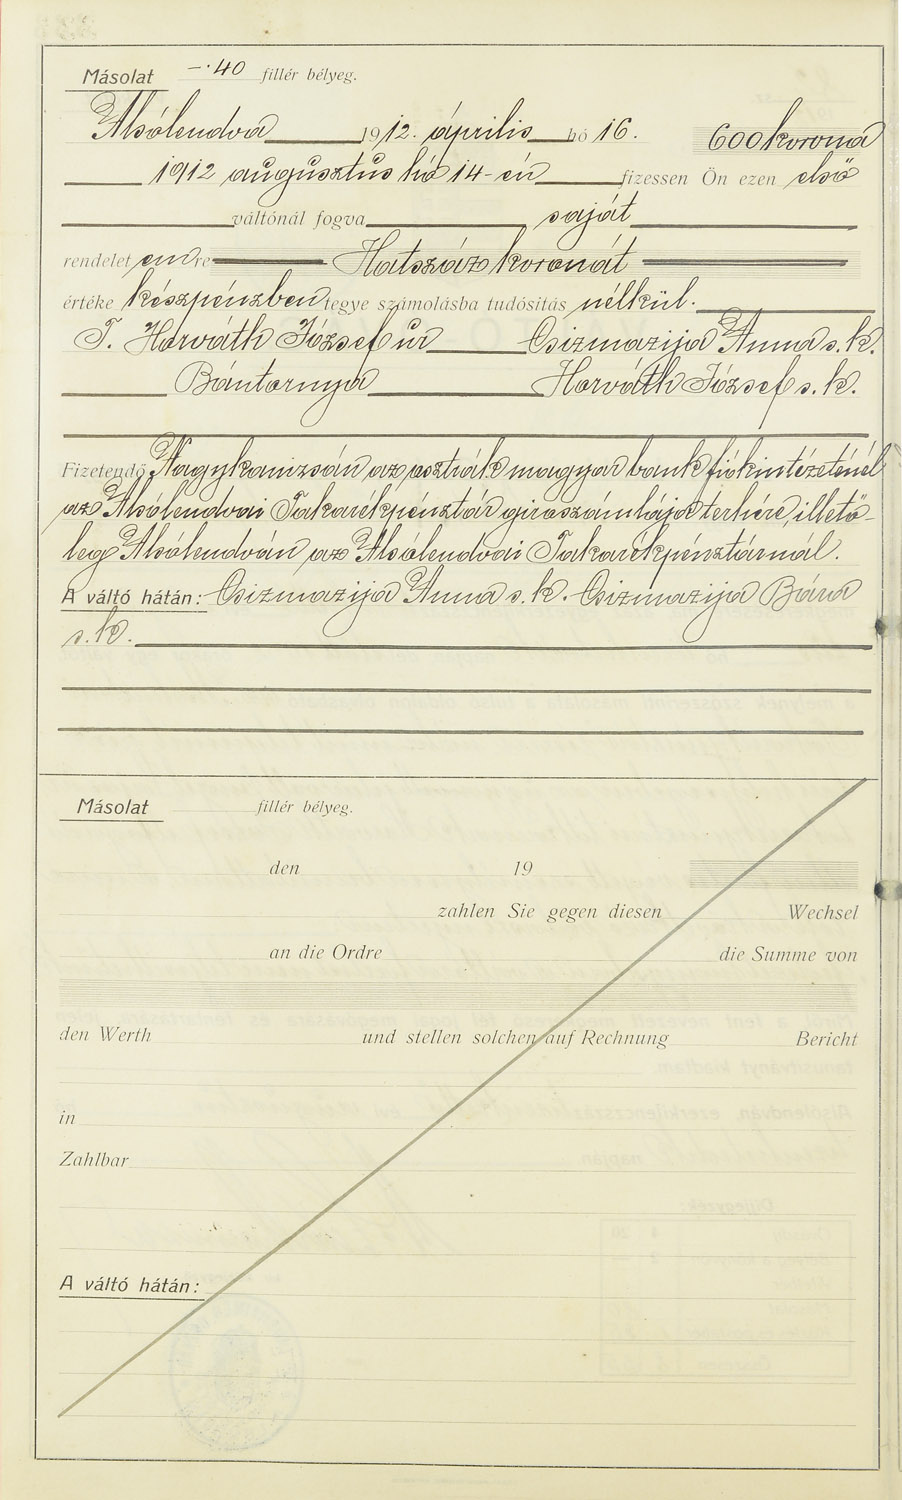 Másolat —·40 fillér bélyeg.
Alsólendva 1912. április hó 16. 600 korona
1912 augusztus hó 14-én fizessen Ön ezen első
váltónál fogva saját
rendeletemre Hatszáz koronát
értéke készpénzben tegye számolásba tudósítás nélkül.
T. Horváth József úr Csizmazija Anna s. k.
Bántornya Horváth József s. k.
Fizetendő Nagykanizsán az osztrák magyar bank fiókintézeténél
az Alsólendvai Takarékpénztár giroszámlája terhére, illető-
leg Alsólendván az Alsólendvai Takarékpénztárnál.
A váltó hátán: Csizmazija Anna s. k. Csizmazija Bára
s. k.
Másolat fillér bélyeg.
den 19
zahlen Sie gegen diesen Wechsel
an die Ordre die Summe von
den Werth und stellen solchen auf Rechnung Bericht
in
Zahlbar
A váltó hátán: